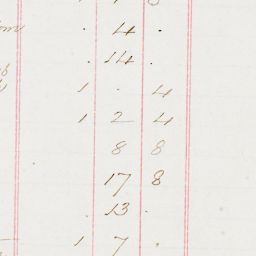 . 4 .
. 14 .
1 . 4
1 2 4
8 8
17 8
. 13 .
1 7 .